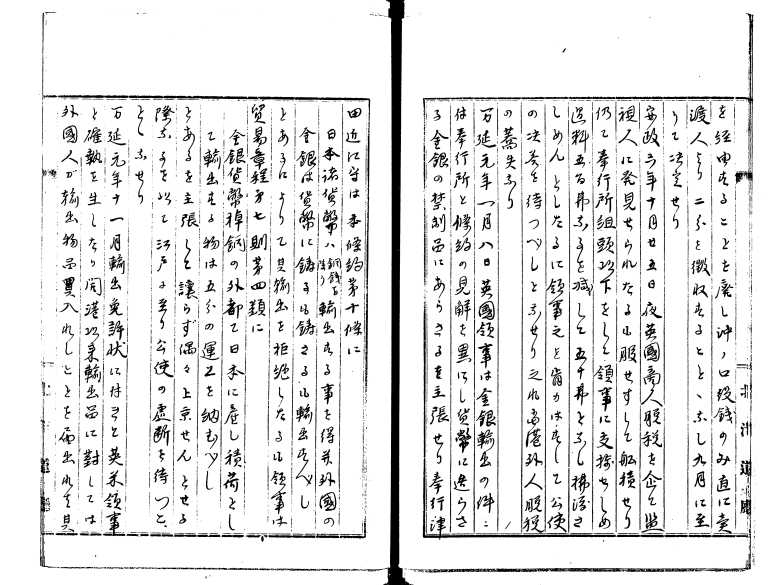 を経由することを廃し沖ノ口役銭のみ直に売
渡人より二分を徴収することゝなし九月に至
りて決定せり
安政六年十月廿五日夜英国商人脱税を企て監
視人に発見せられたるも服せずして船積せり
仍て奉行所組頭以下をして領事に交渉せしめ
過料五百弗なるを減して五十弗となし払はさ
しめんとしたるに領事之を肯かはずして公使
の決答を待つべしとなせり之れ当港外人脱税
の蒿矢なり
万延元年一月八日英国領事は金銀輸出の件に
付奉行所と條約の見解を異にし貨幣に造らさ
る金銀の禁制品にあらさるを主張せり奉行津
田近江守は本條約第十條に
日本諸貨幣ハ銅銭を除く輸出する事を得并外国の
金銀は貨幣に鋳るも鋳さるも輸出すべし
とあるによりて其輸出を拒絶したるも領事は
貿易章程第七則第四類に
金銀貨幣棹銅の外都て日本に産し積荷とし
て輸出する物は五分の運上を納むべし
とあるを主張して譲らず偶々上京せんとする
際なるを以て江戸に至り公使の処断を待つこ
とゝなせり
万延元年十一月輸出免許状に付きて英米領事
と確執を生したり開港以来輸出品に対しては
外国人が輸出物品買入れしことを届出れは其
北海道庁